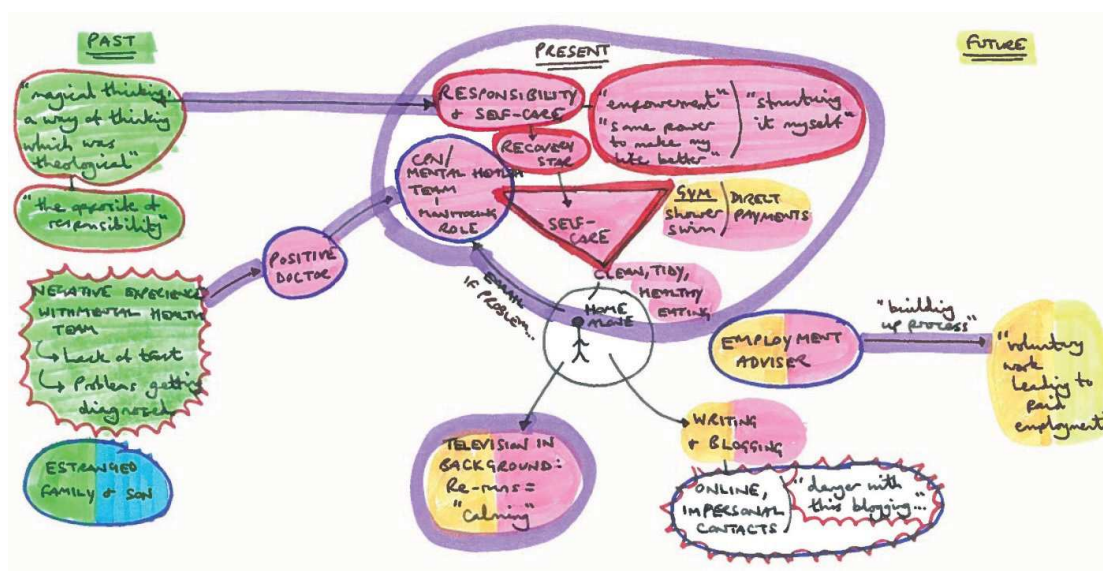 PAST
"magical thinking,
a way of thinking
which was
theological"
"the opposite of
responsibility"
NEGATIVE EXPERIENCE
WITH MENTAL HEALTH
TEAM
Lack of trust
Problems getting
diagnosed
ESTRANGED
FAMILY & SON
POSITIVE
DOCTOR
PRESENT
RESPONSIBILITY
& SELF-CARE
"empowerment"
"some power
to make my
life better"
"structuring
it myself"
RECOVERY
STAR
CPN/
MENTAL HEALTH
TEAM
MONITORING
ROLE
SELF-
CARE
GYM
shower
swim
DIRECT
PAYMENTS
CLEAN, TIDY,
HEALTHY
EATING
EMAIL
IF PROBLEM...
HOME
ALONE
TELEVISION IN
BACKGROUND:
Re-runs =
"calming"
WRITING
& BLOGGING
ONLINE,
IMPERSONAL
CONTACTS
"danger with
this blogging...
EMPLOYMENT
ADVISER
"building
up process"
FUTURE
"voluntary
work
leading to
paid
employment"